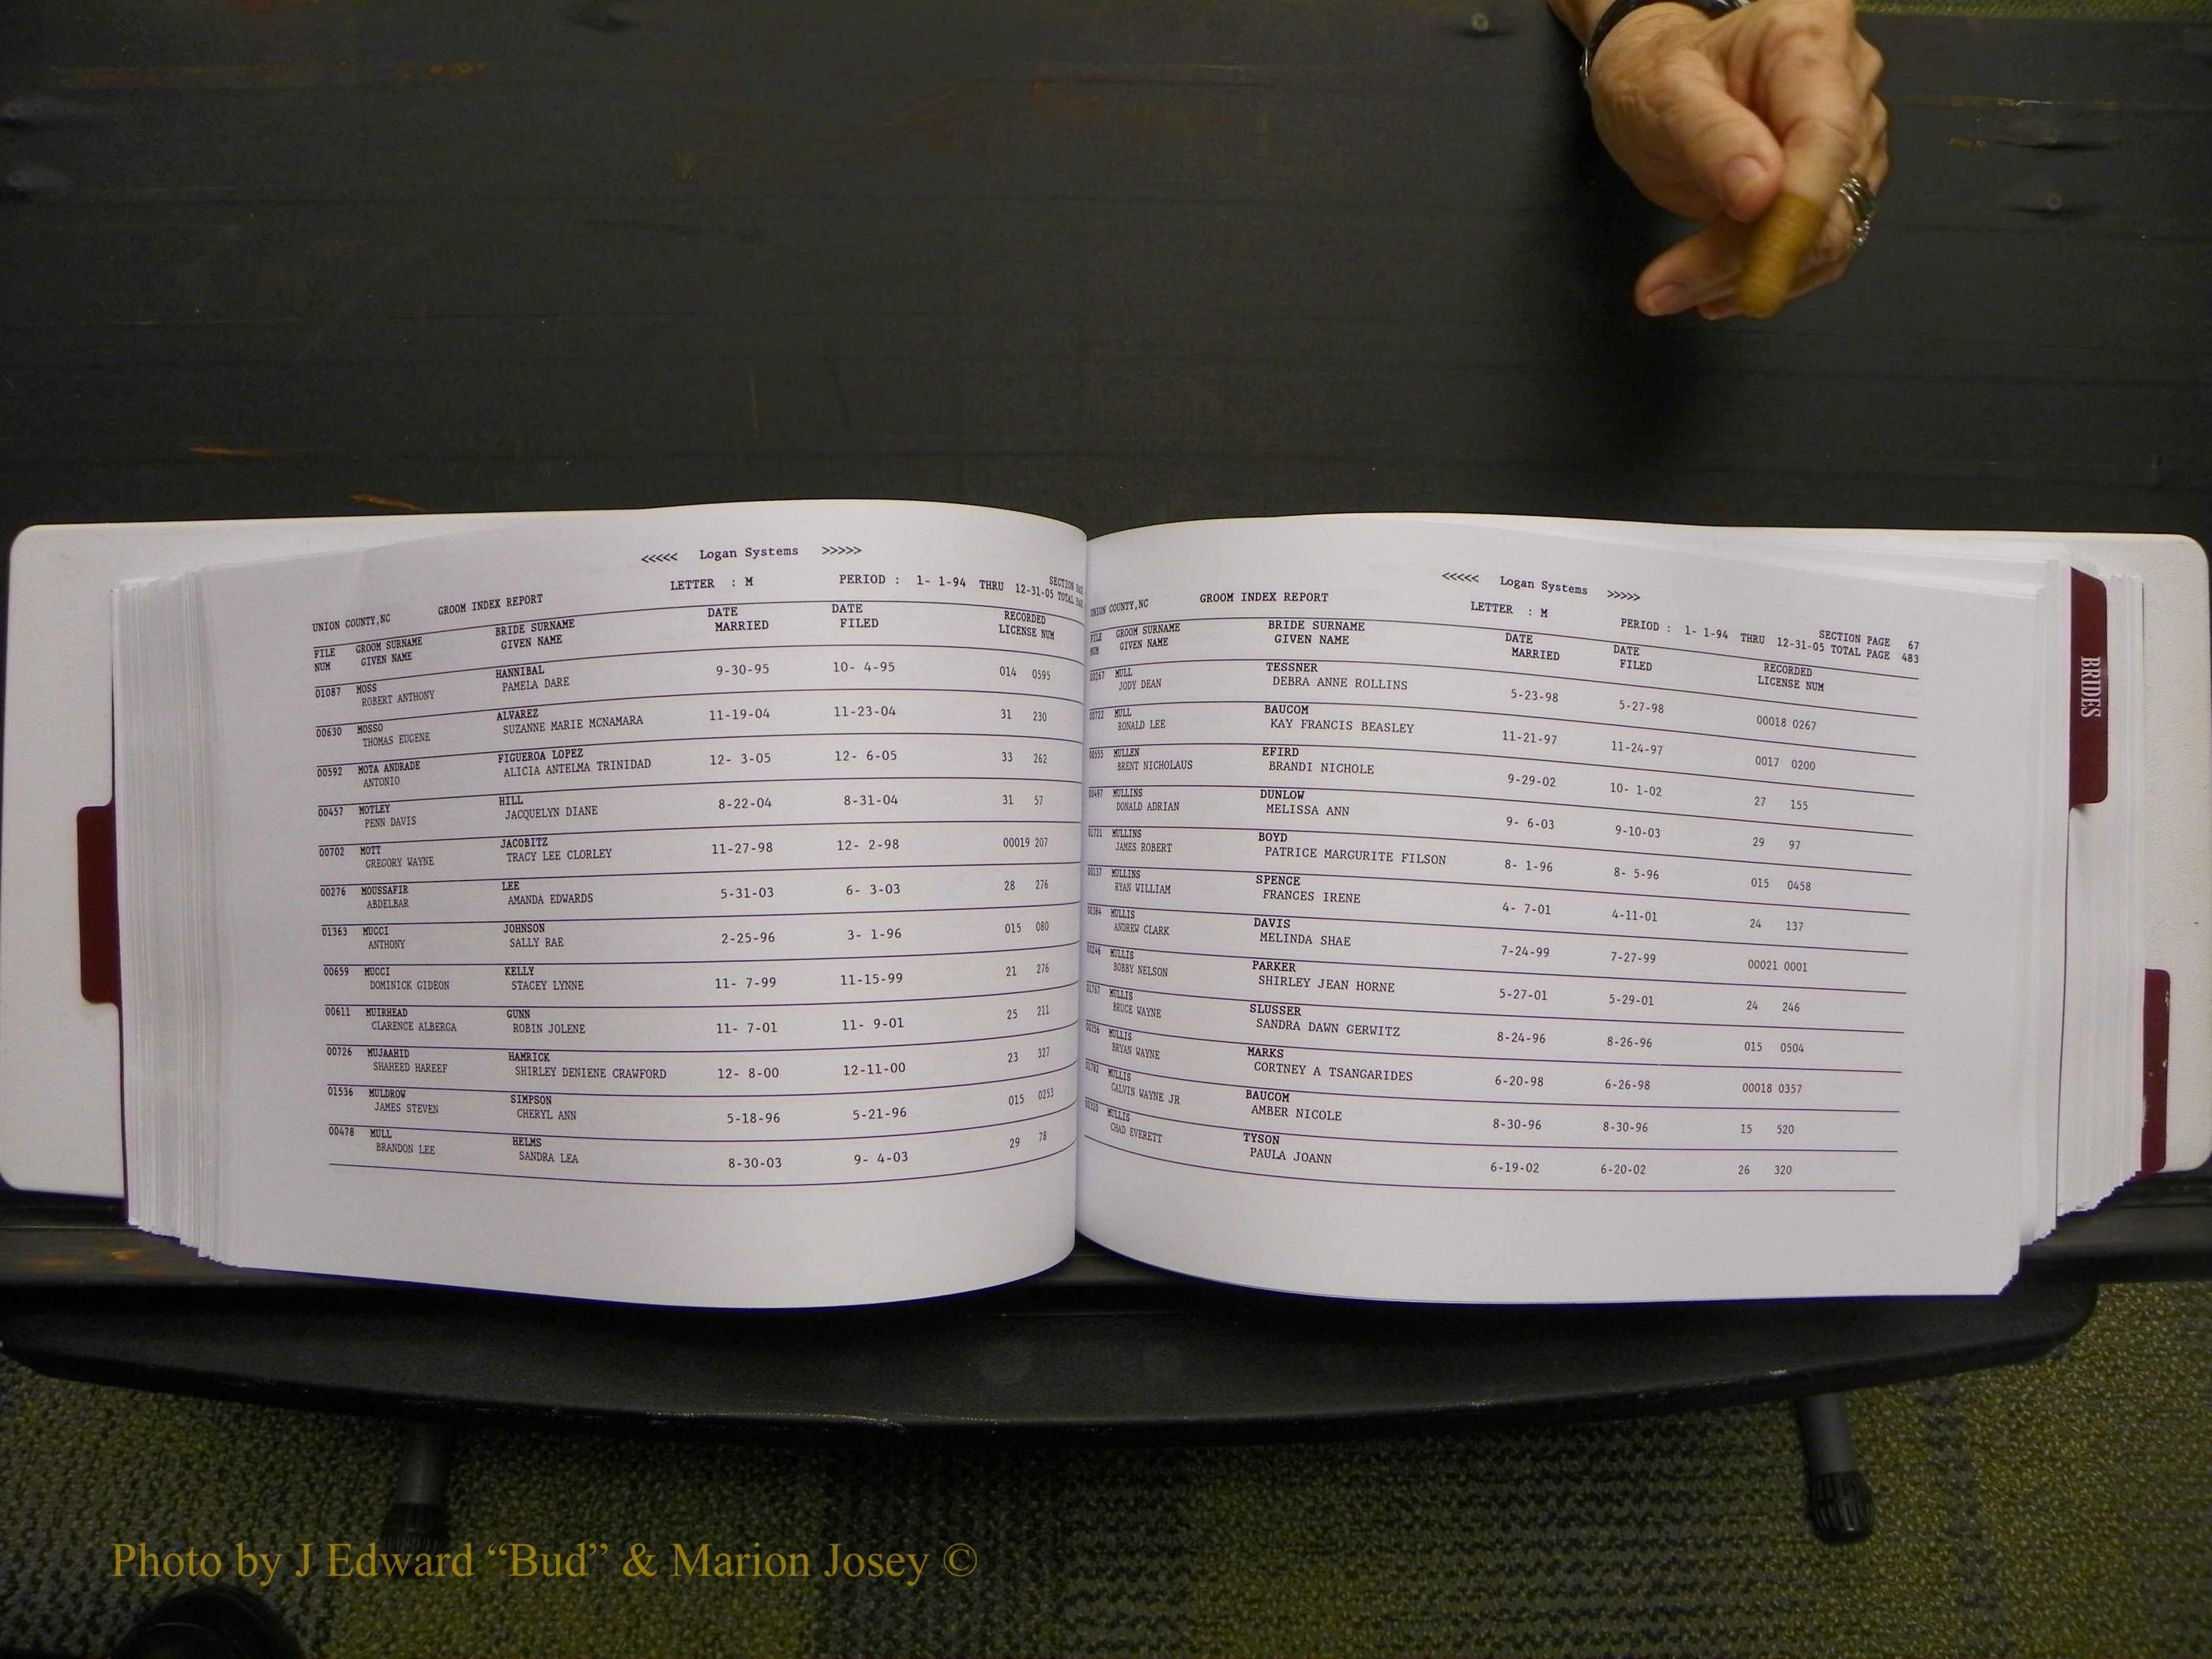 <<<<< Logan Systems >>>>>
UNION COUNTY,NC GROOM INDEX REPORT LETTER : M PERIOD : 1- 1-94 THRU 12-31-05 SECTION
TOTAL
FILE GROOM SURNAME BRIDE SURNAME DATE DATE RECORDED
NUM GIVEN NAME GIVEN NAME MARRIED FILED LICENSE NUM
01087 MOSS HANNIBAL 9-30-95 10- 4-95 014 0595
ROBERT ANTHONY PAMELA DARE
00630 MOSSO ALVAREZ 11-19-04 11-23-04 31 230
THOMAS EUGENE SUZANNE MARIE MCNAMARA
00592 MOTA ANDRADE FIGUEROA LOPEZ 12- 3-05 12- 6-05 33 262
ANTONIO ALICIA ANTELMA TRINIDAD
00457 MOTLEY HILL 8-22-04 8-31-04 31 57
PENN DAVIS JACQUELYN DIANE
00702 MOTT JACOBITZ 11-27-98 12- 2-98 00019 207
GREGORY WAYNE TRACY LEE CLORLEY
00276 MOUSSAFIR LEE 5-31-03 6- 3-03 28 276
ABDELBAR AMANDA EDWARDS
01363 MUCCI JOHNSON 2-25-96 3- 1-96 015 080
ANTHONY SALLY RAE
00659 MUCCI KELLY 11- 7-99 11-15-99 21 276
DOMINICK GIDEON STACEY LYNNE
00611 MUIRHEAD GUNN 11- 7-01 11- 9-01 25 211
CLARENCE ALBERGA ROBIN JOLENE
00726 MUJAAHID HAMRICK 12- 8-00 12-11-00 23 327
SHAHEED HAREEF SHIRLEY DENIENE CRAWFORD
01536 MULDROW SIMPSON 5-18-96 5-21-96 015 0253
JAMES STEVEN CHERYL ANN
00478 MULL HELMS 8-30-03 9- 4-03 29 78
BRANDON LEE SANDRA LEA
<<<<< Logan Systems >>>>>
UNION COUNTY,NC GROOM INDEX REPORT LETTER : M PERIOD : 1- 1-94 THRU 12-31-05 SECTION PAGE 67
TOTAL PAGE 483
FILE GROOM SURNAME BRIDE SURNAME DATE DATE RECORDED
NUM GIVEN NAME GIVEN NAME MARRIED FILED LICENSE NUM
00267 MULL TESSNER 5-23-98 5-27-98 00018 0267
JODY DEAN DEBRA ANNE ROLLINS
00722 MULL BAUCOM 11-21-97 11-24-97 0017 0200
RONALD LEE KAY FRANCIS BEASLEY
00555 MULLEN EFIRD 9-29-02 10- 1-02 27 155
BRENT NICHOLAUS BRANDI NICHOLE
00497 MULLINS DUNLOW 9- 6-03 9-10-03 29 97
DONALD ADRIAN MELISSA ANN
01721 MULLINS BOYD 8- 1-96 8- 5-96 015 0458
JAMES ROBERT PATRICE MARGURITE FILSON
00137 MULLINS SPENCE 4- 7-01 4-11-01 24 137
RYAN WILLIAM FRANCES IRENE
00384 MULLIS DAVIS 7-24-99 7-27-99 00021 0001
ANDREW CLARK MELINDA SHAE
00246 MULLIS PARKER 5-27-01 5-29-01 24 246
BOBBY NELSON SHIRLEY JEAN HORNE
01767 MULLIS SLUSSER 8-24-96 8-26-96 015 0504
BRUCE WAYNE SANDRA DAWN GERWITZ
00356 MULLIS MARKS 6-20-98 6-26-98 00018 0357
BRYAN WAYNE CORTNEY A TSANGARIDES
01782 MULLIS BAUCOM 8-30-96 8-30-96 15 520
CALVIN WAYNE JR AMBER NICOLE
00320 MULLIS TYSON 6-19-02 6-20-02 26 320
CHAD EVERETT PAULA JOANN
BRIDES
Photo by J Edward “Bud” & Marion Josey ©